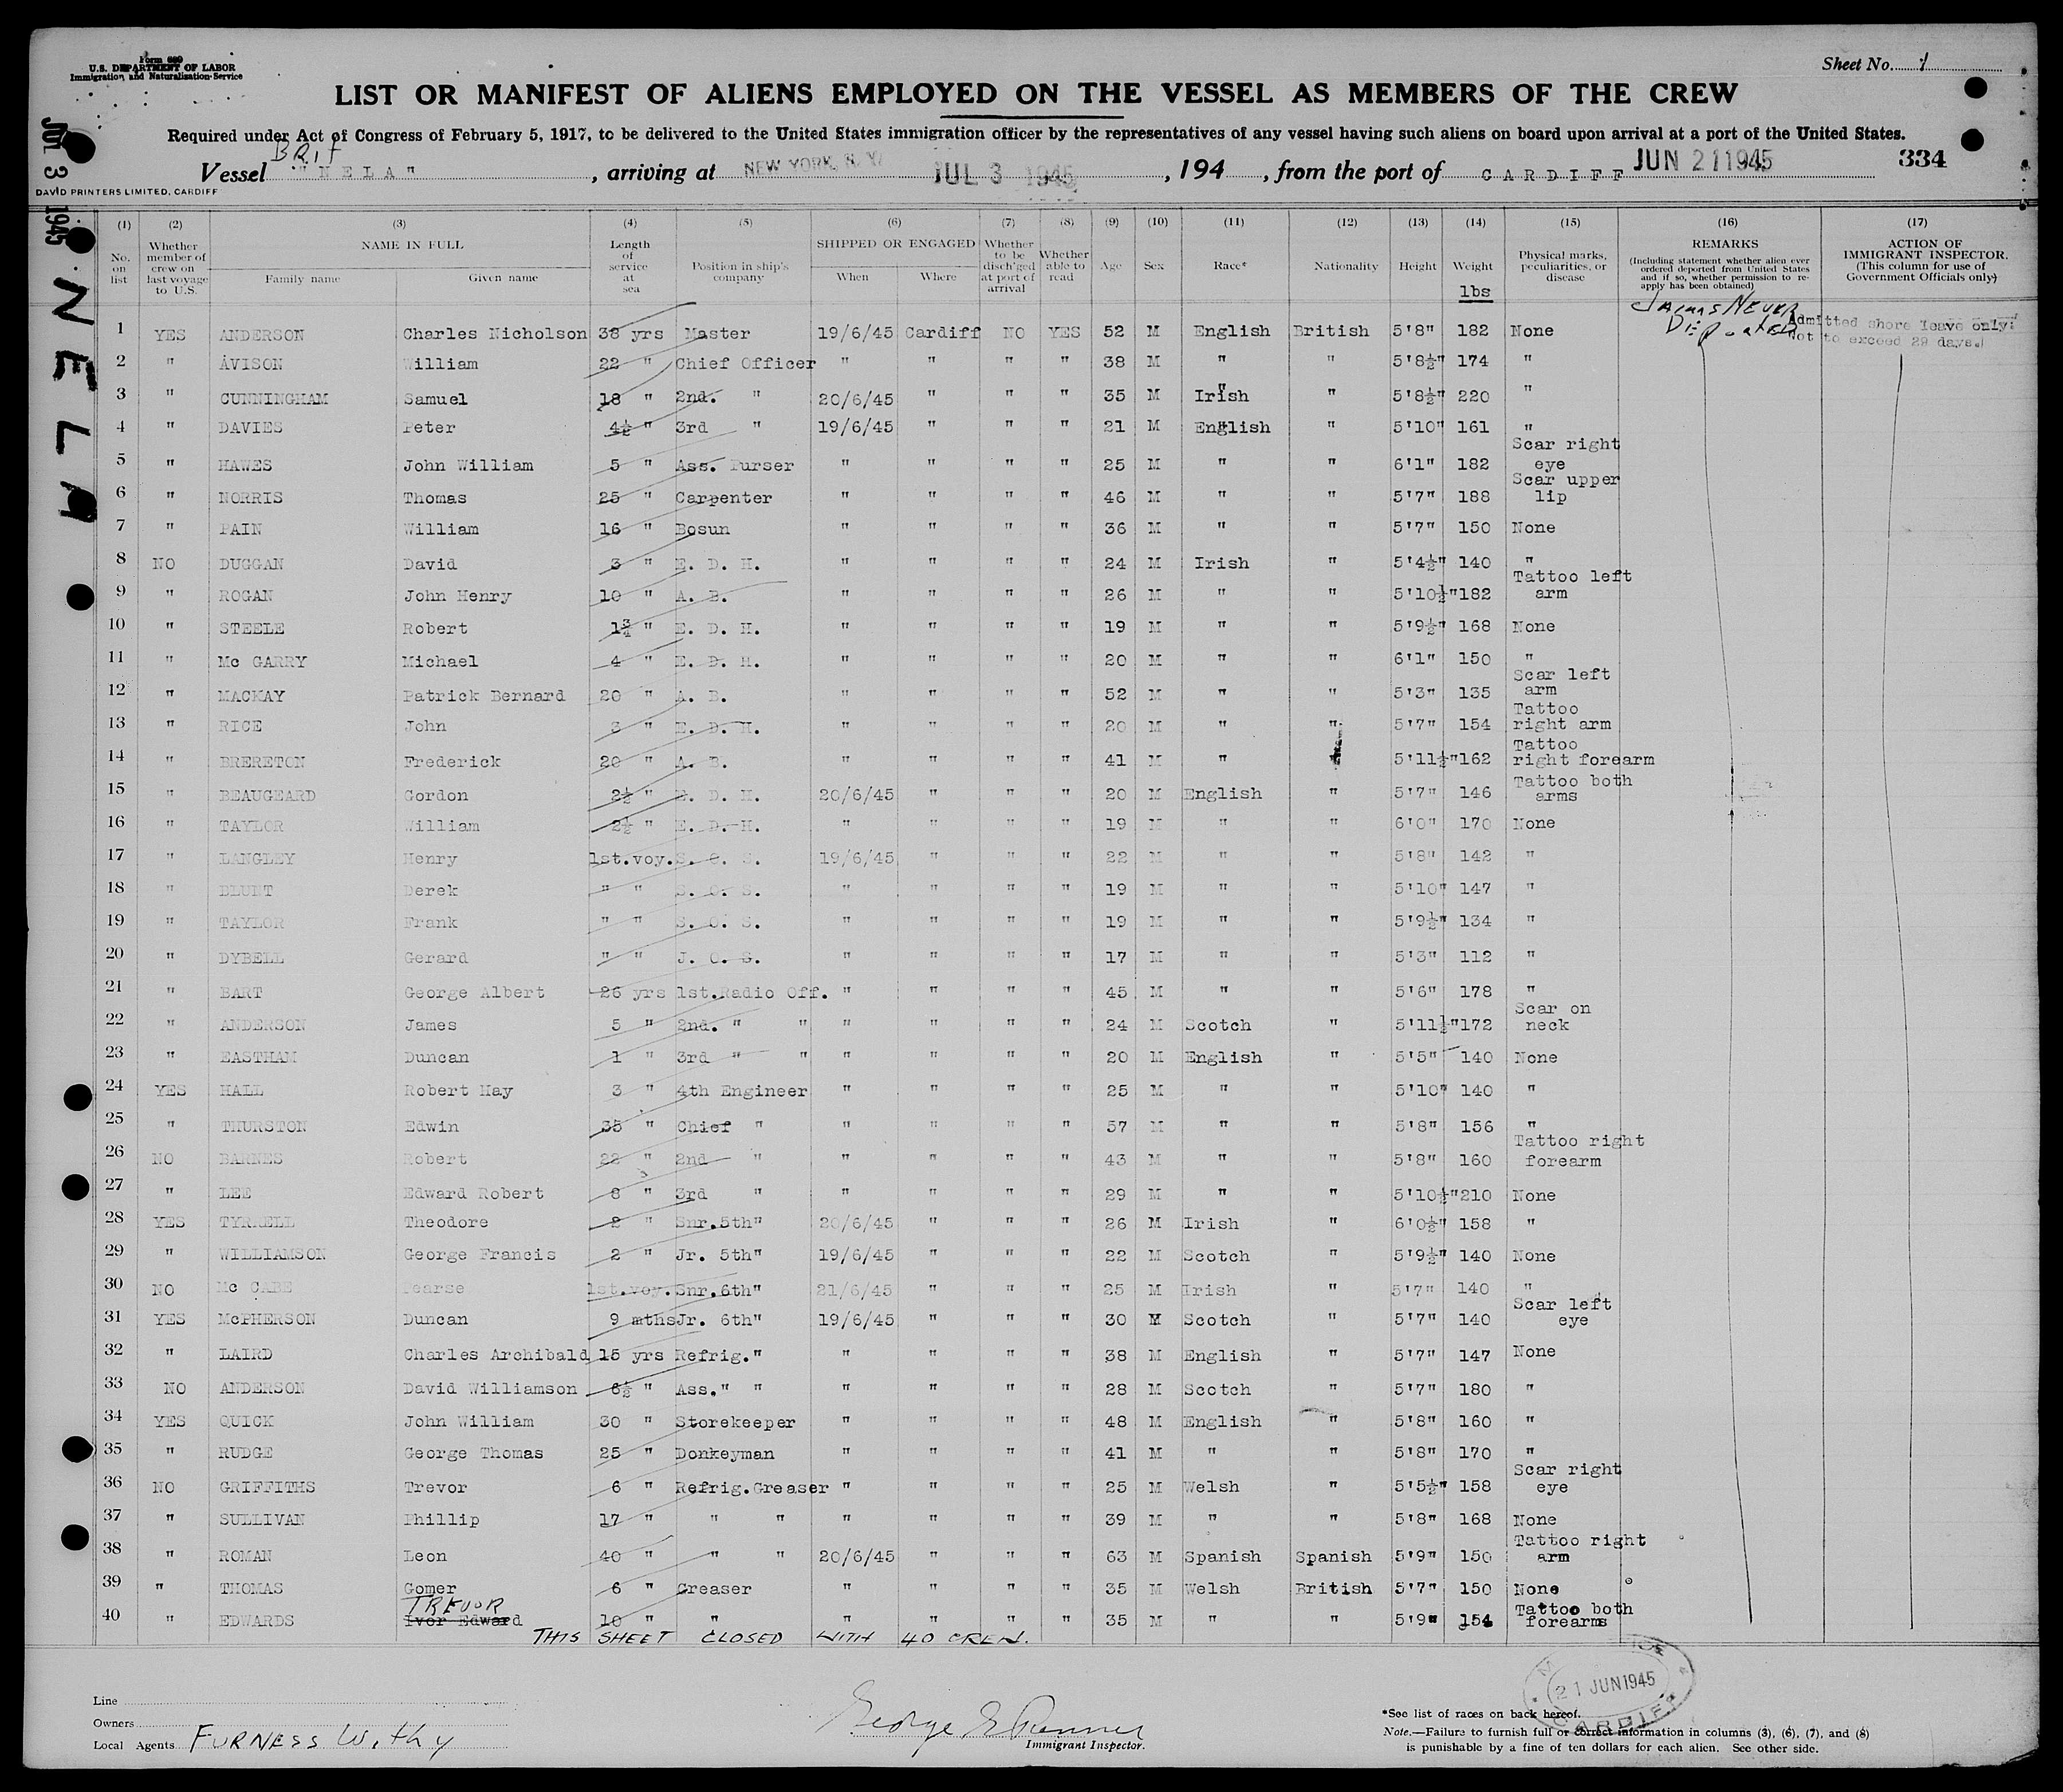 Form 689
U.S. DEPARTMENT OF LABOR
Immigration and Naturalization Service
Sheet No. 1
LIST OR MANIFEST OF ALIENS EMPLOYED ON THE VESSEL AS MEMBERS OF THE CREW
Required under Act of Congress of February 5, 1917, to be delivered to the United States immigration officer by the representatives of any vessel having such aliens on board upon arrival at a port of the United States.
BRIT
Vessel "NELA", arriving at NEW YORK, N.Y. JUL 3 1945, 194 , from the port of CARDIFF JUN 21 1945 334
DAVID PRINTERS LIMITED, CARDIFF
JUL 3 1945
NELA
(1) (2) (3) (4) (5) (6) (7) (8) (9) (10) (11) (12) (13) (14) (15) (16) (17)
No. on list | Whether member of crew on last voyage to U.S. | NAME IN FULL Family name Given name | Length of service at sea | Position in ship's company | SHIPPED OR ENGAGED When Where | Whether to be disch'ged at port of arrival | Whether able to read | Age | Sex | Race* | Nationality | Height | Weight lbs | Physical marks, peculiarities, or disease | REMARKS (Including statement whether alien ever ordered deported from United States and if so, whether permission to re-apply has been obtained) | ACTION OF IMMIGRANT INSPECTOR. (This column for use of Government Officials only)
Never Deported
Admitted shore leave only:
Not to exceed 29 days.
1 YES ANDERSON Charles Nicholson 38 yrs Master 19/6/45 Cardiff NO YES 52 M English British 5'8" 182 None
2 " AVISON William 22 " Chief Officer " " " " 38 M " " 5'8½" 174 "
3 " CUNNINGHAM Samuel 18 " 2nd. " 20/6/45 " " " 35 M Irish " 5'8½" 220 "
4 " DAVIES Peter 4½ " 3rd " 19/6/45 " " " 21 M English " 5'10" 161 "
5 " HAWES John William 5 " Ass. Purser " " " " 25 M " " 6'1" 182 Scar right eye
6 " NORRIS Thomas 25 " Carpenter " " " " 46 M " " 5'7" 188 Scar upper lip
7 " PAIN William 16 " Bosun " " " " 36 M " " 5'7" 150 None
8 NO DUGGAN David 3 " E. D. H. " " " " 24 M Irish " 5'4½" 140 "
9 " ROGAN John Henry 10 " A. B. " " " " 26 M " " 5'10½" 182 Tattoo left arm
10 " STEELE Robert 1¾ " E. D. H. " " " " 19 M " " 5'9½" 168 None
11 " Mc GARRY Michael 4 " E. D. H. " " " " 20 M " " 6'1" 150 "
12 " MACKAY Patrick Bernard 20 " A. B. " " " " 52 M " " 5'3" 135 Scar left arm
13 " RICE John 3 " E. D. H. " " " " 20 M " " 5'7" 154 Tattoo right arm
14 " BRERETON Frederick 20 " A. B. " " " " 41 M " " 5'11½" 162 Tattoo right forearm
15 " BEAUGEARD Gordon 2½ " E. D. H. 20/6/45 " " " 20 M English " 5'7" 146 Tattoo both arms
16 " TAYLOR William 2½ " E. D. H. " " " " 19 M " " 6'0" 170 None
17 " LANGLEY Henry 1st.voy. S. O. S. 19/6/45 " " " 22 M " " 5'8" 142 "
18 " BLUNT Derek " " S. O. S. " " " " 19 M " " 5'10" 147 "
19 " TAYLOR Frank " " S. O. S. " " " " 19 M " " 5'9½" 134 "
20 " DYBELL Gerard " " J. O. S. " " " " 17 M " " 5'3" 112 "
21 " BART George Albert 26 yrs 1st.Radio Off. " " " " 45 M " " 5'6" 178 "
22 " ANDERSON James 5 " 2nd. " " " " " " 24 M Scotch " 5'11½" 172 Scar on neck
23 " EASTHAM Duncan 1 " 3rd " " " " " " 20 M English " 5'5" 140 None
24 YES HALL Robert Hay 3 " 4th Engineer " " " " 25 M " " 5'10" 140 "
25 " THURSTON Edwin 35 " Chief " " " " " 57 M " " 5'8" 156 "
26 NO BARNES Robert 22 " 2nd " " " " " 43 M " " 5'8" 160 Tattoo right forearm
27 " LEE Edward Robert 8 " 3rd " " " " " 29 M " " 5'10½" 210 None
28 YES TYRRELL Theodore 2 " Snr.5th" 20/6/45 " " " 26 M Irish " 6'0½" 158 "
29 " WILLIAMSON George Francis 2 " Jr. 5th" 19/6/45 " " " 22 M Scotch " 5'9½" 140 None
30 NO Mc CABE Pearse 1st.voy. Snr.6th" 21/6/45 " " " 25 M Irish " 5'7" 140 "
31 YES McPHERSON Duncan 9 mths Jr. 6th" 19/6/45 " " " 30 M Scotch " 5'7" 140 Scar left eye
32 " LAIRD Charles Archibald 15 yrs Refrig." " " " " 38 M English " 5'7" 147 None
33 NO ANDERSON David Williamson 6½ " Ass." " " " " " 28 M Scotch " 5'7" 180 "
34 YES QUICK John William 30 " Storekeeper " " " " 48 M English " 5'8" 160 "
35 " RUDGE George Thomas 25 " Donkeyman " " " " 41 M " " 5'8" 170 "
36 NO GRIFFITHS Trevor 6 " Refrig.Greaser " " " " 25 M Welsh " 5'5½" 158 Scar right eye
37 " SULLIVAN Phillip 17 " " " " " " " 39 M " " 5'8" 168 None
38 " ROMAN Leon 40 " " " 20/6/45 " " " 63 M Spanish Spanish 5'9" 150 Tattoo right arm
39 " THOMAS Gomer 6 " Greaser " " " " 35 M Welsh British 5'7" 150 None
40 " EDWARDS TREVOR Ivor Edward 10 " " " " " " 35 M " " 5'9" 154 Tattoo both forearms
THIS SHEET CLOSED WITH 40 CREW.
21 JUN 1945
CARDIFF
Line
Owners
Local Agents FURNESS Withy
Immigrant Inspector.
*See list of races on back hereof.
Note.—Failure to furnish full or correct information in columns (3), (6), (7), and (8)
is punishable by a fine of ten dollars for each alien. See other side.